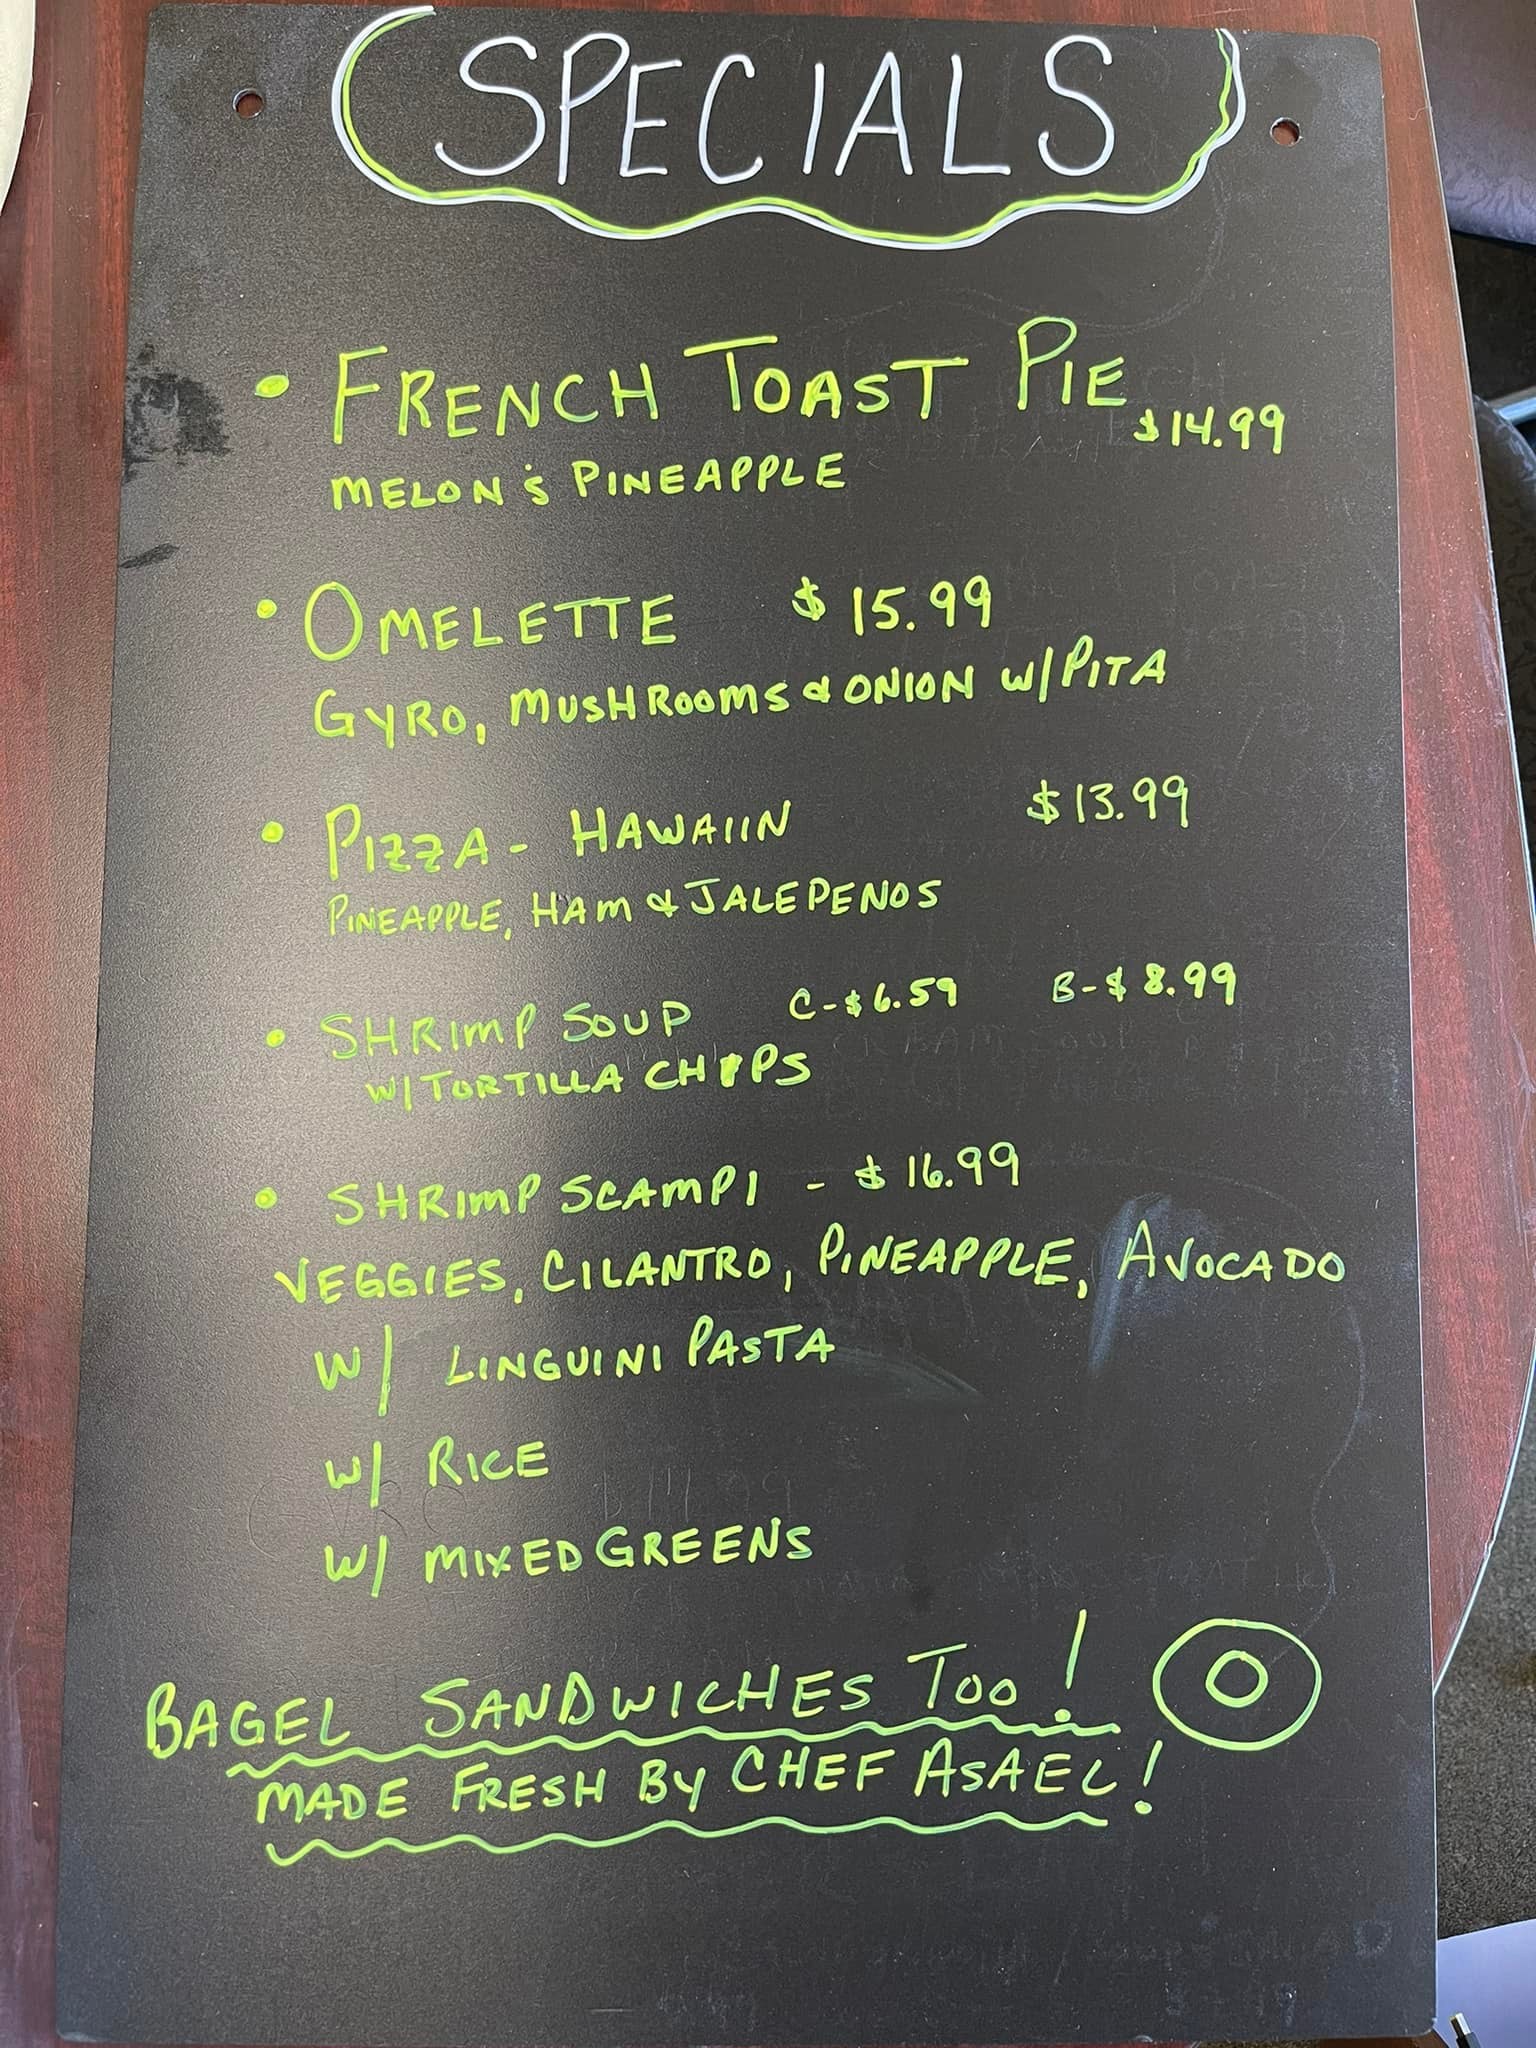 SPECIALS
• FRENCH TOAST PIE $14.99
MELON & PINEAPPLE
• OMELETTE $15.99
GYRO, MUSHROOMS & ONION W/PITA
• PIZZA - HAWAIIN $13.99
PINEAPPLE, HAM & JALEPENOS
• SHRIMP SOUP C-$6.59 B-$8.99
W/TORTILLA CHIPS
• SHRIMP SCAMPI - $16.99
VEGGIES, CILANTRO, PINEAPPLE, AVOCADO
W/ LINGUINI PASTA
W/ RICE
W/ MIXED GREENS
BAGEL SANDWICHES TOO!
MADE FRESH BY CHEF ASAEL!